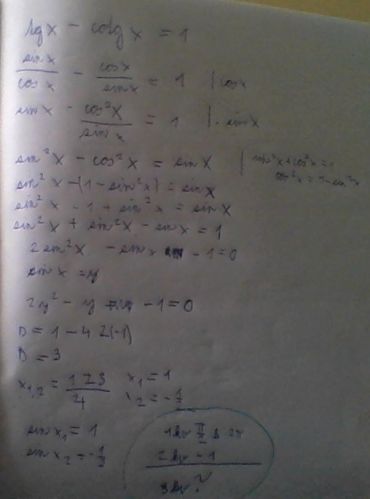 tgx - cotgx = 1
sinx/cosx - cosx/sinx = 1 | cosx
sinx - cos²x/sinx = 1 | · sinx
sin²x - cos²x = sinx | sin²x + cos²x = 1
cos²x = 1 - sin²x
sin²x - (1 - sin²x) = sinx
sin²x - 1 + sin²x = sinx
sin²x + sin²x - sinx = 1
2 sin²x - sinx - 1 = 0
sinx = y
2y² - y - 1 = 0
D = 1 - 4 2(-1)
D = 3
x₁,₂ = 1 ± 3/4 x₁ = 1
x₂ = -1/2
sinx₁ = 1
sinx₂ = -1/2
π/2